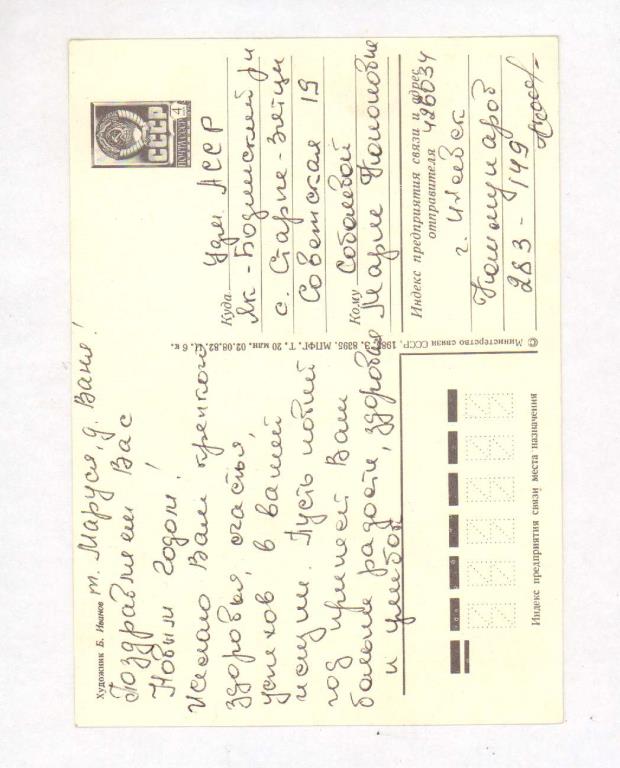 Художник Б. Иванов
т. Маруся, д. Ваня!
Поздравляем Вас
Новым годом!
Желаю Вам крепкого
здоровья, счастья
успехов в вашей
жизни. Пусть новый
год принесет Вам
больше радости, здоровья
и
© Министерство связи СССР, З. 8395. МПФГ. Т. 20 млн. 02.08.82. Ц. 6 к.
СССР
ПОЧТА СССР 4
Куда Удм АССР
Як-Бодьинский р-н
с. Старые-Зятцы
Советская 19
Кому Соболевой
Марие
Индекс предприятия связи и адрес
отправителя 426034
г. Ижевск
283-149
Индекс предприятия связи места назначения